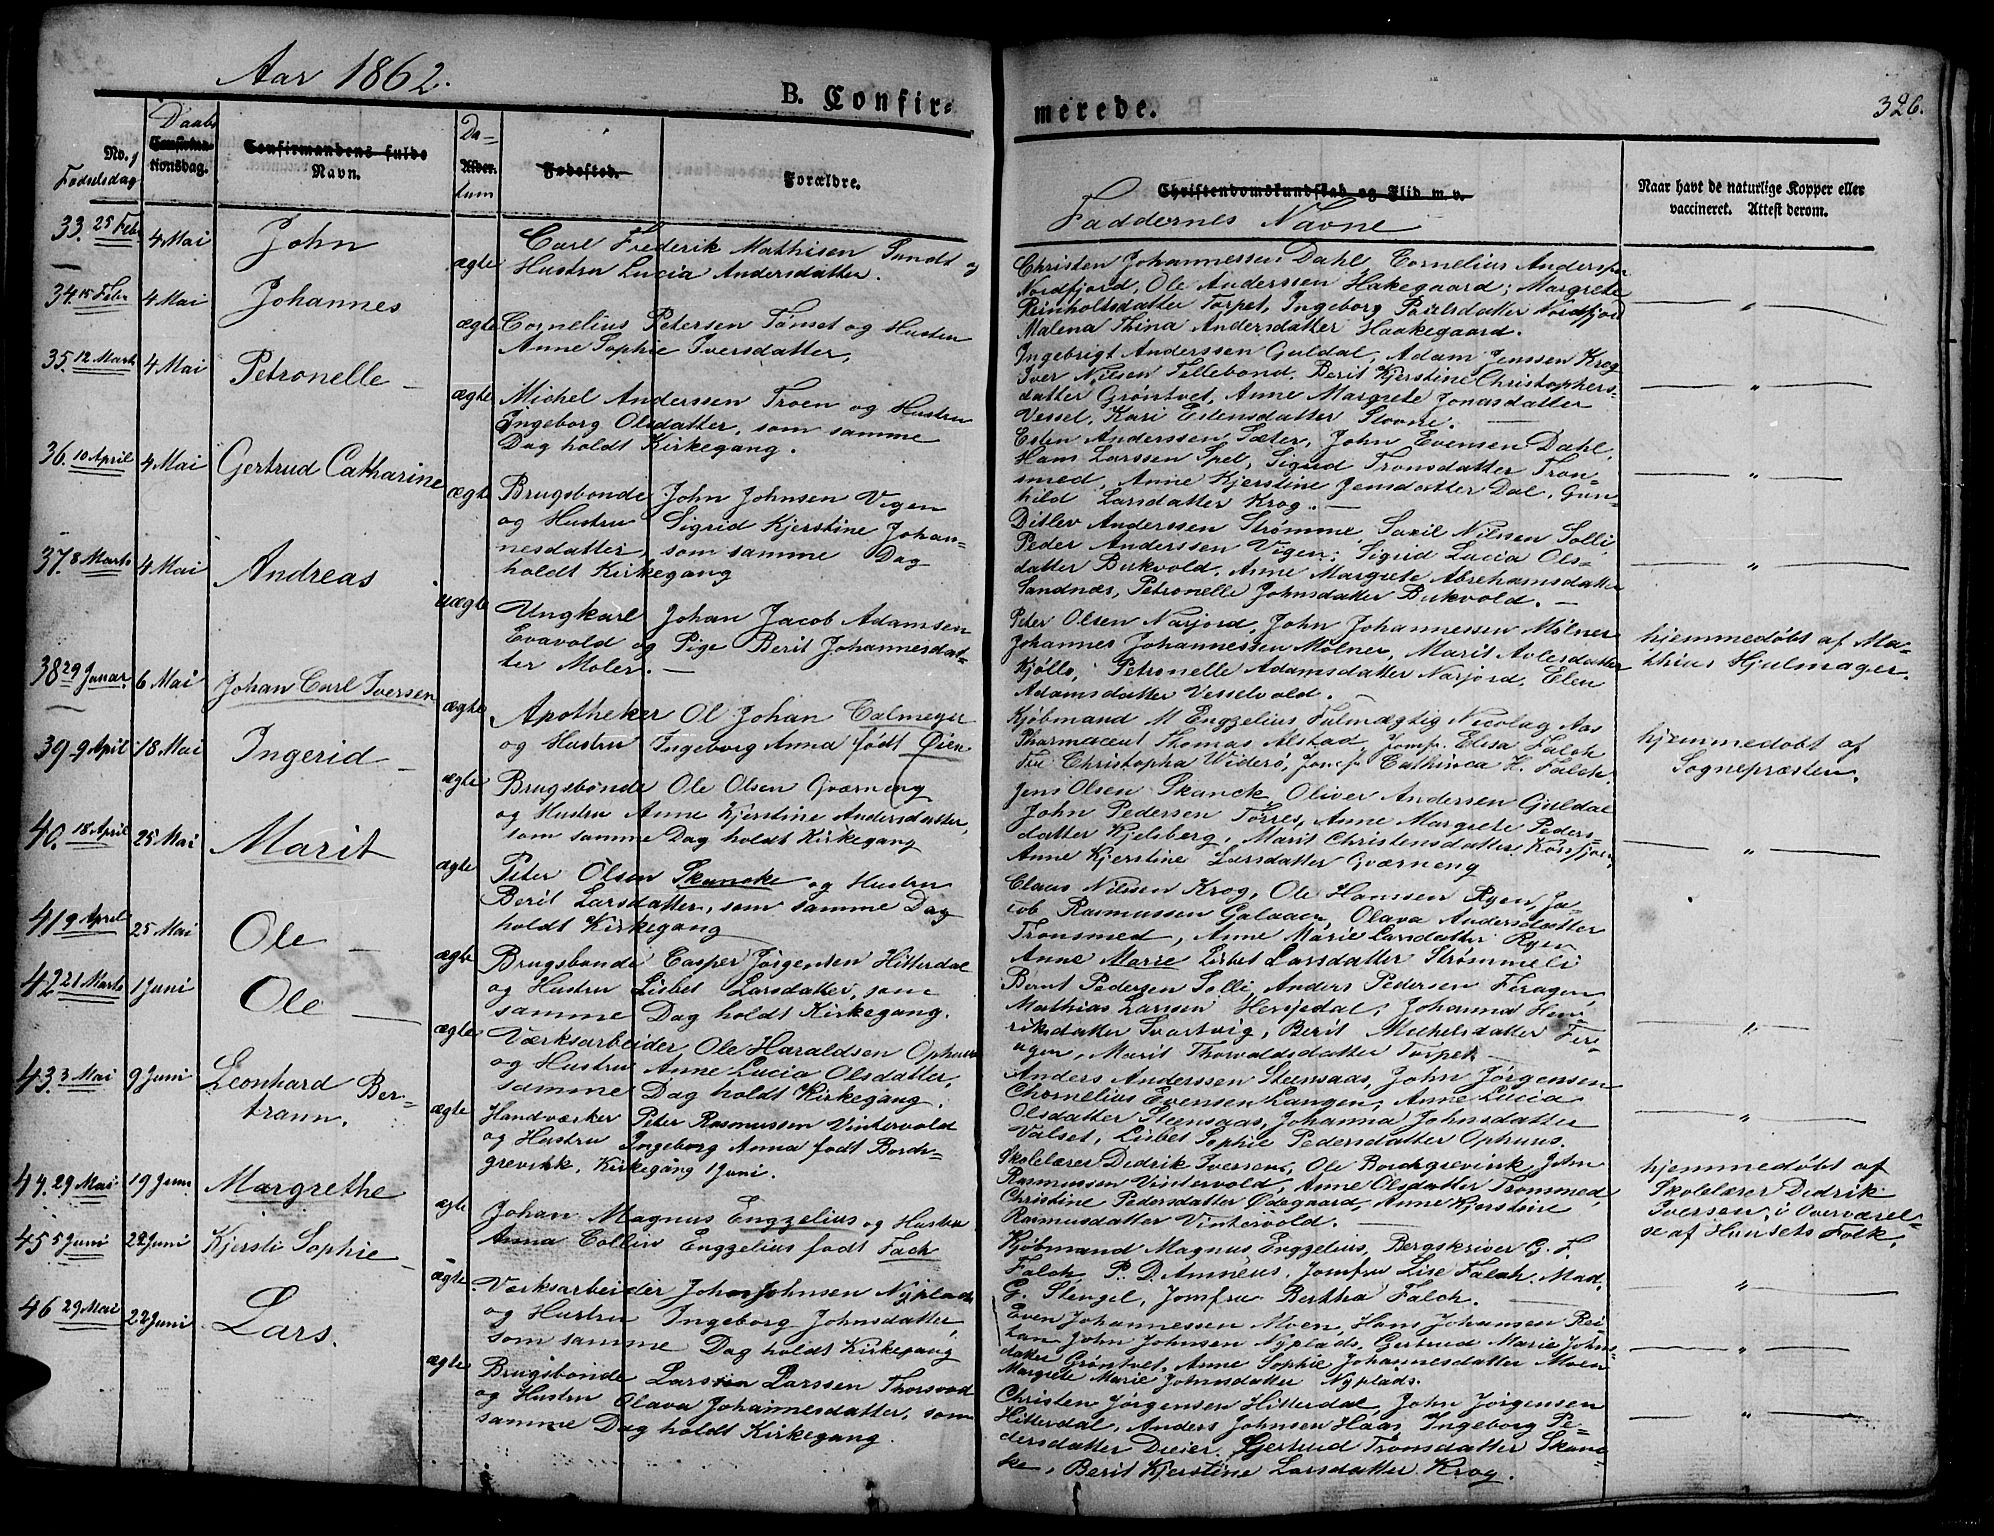 Aar 1862.
B. Confir=
merede.
326.
No. &
Fødselsdag
Daabs
Confirma-
tionsdag.
Confirmandens fulde
Navn.
Da=
Alder.
tum
Fødested.
Forældre.
Christendomskundskab og Flid m. v.
Faddernes Navne
Naar havt de naturlige Kopper eller
vaccineret. Attest derom.
33. 25 Feb. 4 Mai John
ægte Carl Frederik Mathisen Sundt og
Hustru Lucia Andersdatter.
Christen Johannessen Dahl, Cornelius Anderssen
Nordfjord, Ole Anderssen Hakegaard; Margrete
Reinholtsdatter Torpet, Ingeborg Poulsdatter Nordfjord
Malena Thina Andersdatter Haakegaard.
— „ —
34. 15 Febr 4 Mai Johannes
ægte Cornelius Petersen Tønset og Hustru
Anne Sophie Iversdatter.
Ingebrigt Anderssen Guldal, Adam Jenssen Krog
Iver Nilsen Tellebond, Berit Kjerstine Christophers-
datter Grøntvet, Anne Margrete Jonasdatter
Vessel, Kari Estensdatter Stovne.
— „ —
35. 12 Marts 4 Mai Petronelle —
ægte Michel Anderssen Troen og Hustru
Ingeborg Olsdatter, som samme
Dag holdt Kirkegang.
Esten Anderssen Sæter, John Evensen Dahl,
Hans Larssen Spel, Sigrid Tronsdatter Tron-
smed, Anne Kjerstine Jensdatter Dal, Gun-
hild Larsdatter Krog. —
— „ —
36. 10 April 4 Mai Gertrud Catharine
ægte Brugsbonde John Johnsen Vigen
og Hustru Sigrid Kjerstine Johan-
nesdatter, som samme Dag
holdt Kirkegang
Ditlev Anderssen Strømme, Nilssen Solli,
Peder Anderssen Vigen; Sigrid Lucia Ols-
datter Birkvold, Anne Margrete Abrehamsdatter
Sandnæs, Petronelle Johnsdatter Birkvold. —
— „ —
37. 8 Marts 4 Mai Andreas
uægte Ungkarl Johan Jacob Adamsen
Evavold og Pige Berit Johannesdat-
ter Moler. —
Peter Olsen Narjord, John Johannessen Mølner
Johannes Johannessen Mølner, Marit Avlesdatter
Kjølle, Petronelle Adamsdatter Narjord, Elen
Adamsdatter Vesselvold. —
hjemmedøbt af Ma-
thias Hjulmager.
38. 29 Januar. 6 Mai Johan Carl Iversen
ægte Apotheker Ol Johan Calmeyer
og Hustru Ingeborg Anna født Øien
Kjøbmand M Engzelius Fulmægtig Nicolay Aas
Pharmaceut Thomas Alstad, Jomfr. Elisa Falch
Christopha Viderø, Jomfr Cathinca H. Falch.
hjemmedøbt af
Sognepræsten.
39. 9 April 18 Mai Ingerid —
ægte Brugsbonde Ole Olsen Gværneng
og Hustru Anne Kjerstine Andersdatter,
som samme Dag holdt Kirkegang
Jens Olsen Skanck, Oliver Andersen Guldal
John Pedersen Torres, Anne Margrete Peders-
datter Kjelsberg, Marit Christensdatter Korssjoen
Anne Kjerstine Larsdatter Gværneng
— „ —
40. 18 April 25 Mai Marit
ægte Peter Olsen Skancke og Hustru
Berit Larsdatter, som samme Dag
holdt Kirkegang
Claus Nilssen Krog, Ole Hanssen Ryen, Ja-
cob Rasmussen Galaaen, Olava Andersdatter
Tronsmed, Anne Marie Larsdatter Ryen
Anne Marie Lisbet Larsdatter Strømmeli
41. 9 April 25 Mai Ole —
ægte Brugsbonde Casper Jørgensen Hitterdal
og Hustru Lisbet Larsdatter, som
samme Dag holdt Kirkegang.
Bernt Pedersen Solli, Anders Pedersen Feragen
Mathias Larssen Herjedal, Johanna Hen-
riksdatter Svartvig, Berit Michelsdatter Fer-
agen, Marit Thorvaldsdatter Torpet —
— „ —
42. 21 Marts 1 Juni Ole —
ægte Værksarbeider Ole Haraldsen Ophuus
og Hustru Anne Lucia Olsdatter,
samme Dag holdt Kirkegang.
Anders Anderssen Steensaas, John Jørgensen
Chornelius Evensen Langen, Anne Lucia
Olsdatter Steensaas, Johanna Johnsdatter
Valset, Lisbet Sophie Pedersdatter Ophuus.
— „ —
43. 3 Mai 9 Juni Leonhard Ber-
trann.
ægte Handværker Peter Rasmussen Vintervold
og Hustru Ingeborg Anna født Bordi-
grevikk, Kirkegang 1 Juni.
Skolelærer Dedrik Iversen, Ole Bordgrevink, John
Rasmussen Vintervold, Anne Olsdatter Tronsmed,
Christine Pedersdatter Ødegaard, Anne Kjerstine
Rasmusdatter Vintervold. —
hjemmedøbt af
Skolelærer Dedrik
Iversen, i Overværel-
se af Huusets Folk.
44. 29 Mai 19 Juni Margrethe
ægte Johan Magnus Engzelius og Hustru
Anna Collin Engzelius født Fach
Kjøbmand Magnus Engzelius, Bergskriver G. F.
Falch, P. D. Amnéus, Jomfru Lise Falch, Mad.
G. Stengel, Jomfru Bertha Falch.
— „ —
45. 5 Juni 22 Juni Kjersti Sophie —
ægte Værksarbeider John Johnsen Nyplads
og Hustru Ingeborg Johnsdatter,
som samme Dag holdt Kirkegang
Even Johannessen Moen, Hans Johansen Rei-
tan John Johnsen Nyplads, Gertrud Marie Johns-
datter Grøntvet, Anne Sophie Johannesdatter Moen
Margrete Marie Johnsdatter Nyplads.
— „ —
46. 29 Mai 22 Juni Lars.
ægte Brugsbonde Lars Larssen Thorsvold
og Hustru Olava Johannesdatter, som
samme Dag holdt Kirkegang.
Christen Jørgensen Hitterdal, John Jørgensen
Hitterdal, Anders Johnsen Haas, Ingeborg Pe-
dersdatter Dreier, Gjertrud Tronsdatter Skanc-
ke, Berit Kjerstine Larsdatter Krog.
— „ —